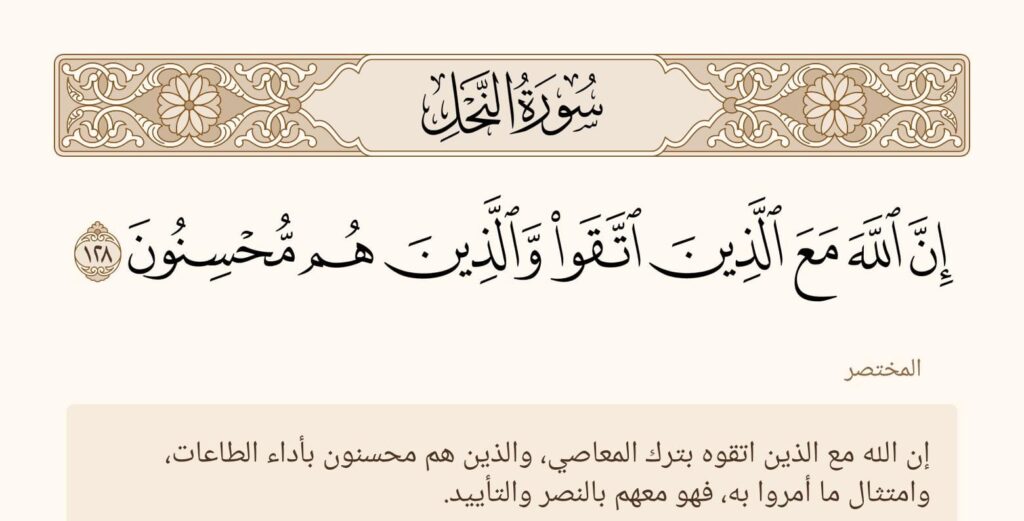 سُورَةُ النَّحْلِ
إِنَّ ٱللَّهَ مَعَ ٱلَّذِينَ ٱتَّقَوا۟ وَّٱلَّذِينَ هُم مُّحْسِنُونَ ١٢٨
المختصر
إن الله مع الذين اتقوه بترك المعاصي، والذين هم محسنون بأداء الطاعات،
وامتثال ما أمروا به، فهو معهم بالنصر والتأييد.